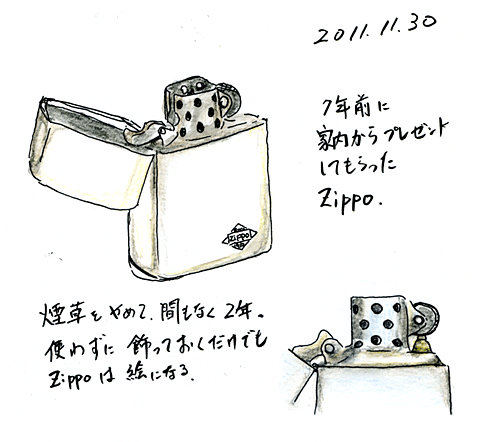 2011.11.30
7年前に
家内からプレゼント
してもらった
Zippo.
Zippo
煙草をやめて、間もなく2年。
使わずに飾っておくだけでも
Zippoは絵になる.